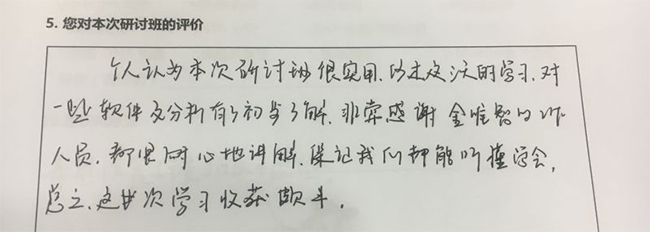 5. 您对本次研讨班的评价
个人认为本次研讨班很实用,以走这次的学习,对
一些软件及分析有了初步了解,非常感谢金唯智的工作
人员,都很耐心地讲解,保证我们都能听懂学会,
总之,这次学习收获颇丰。